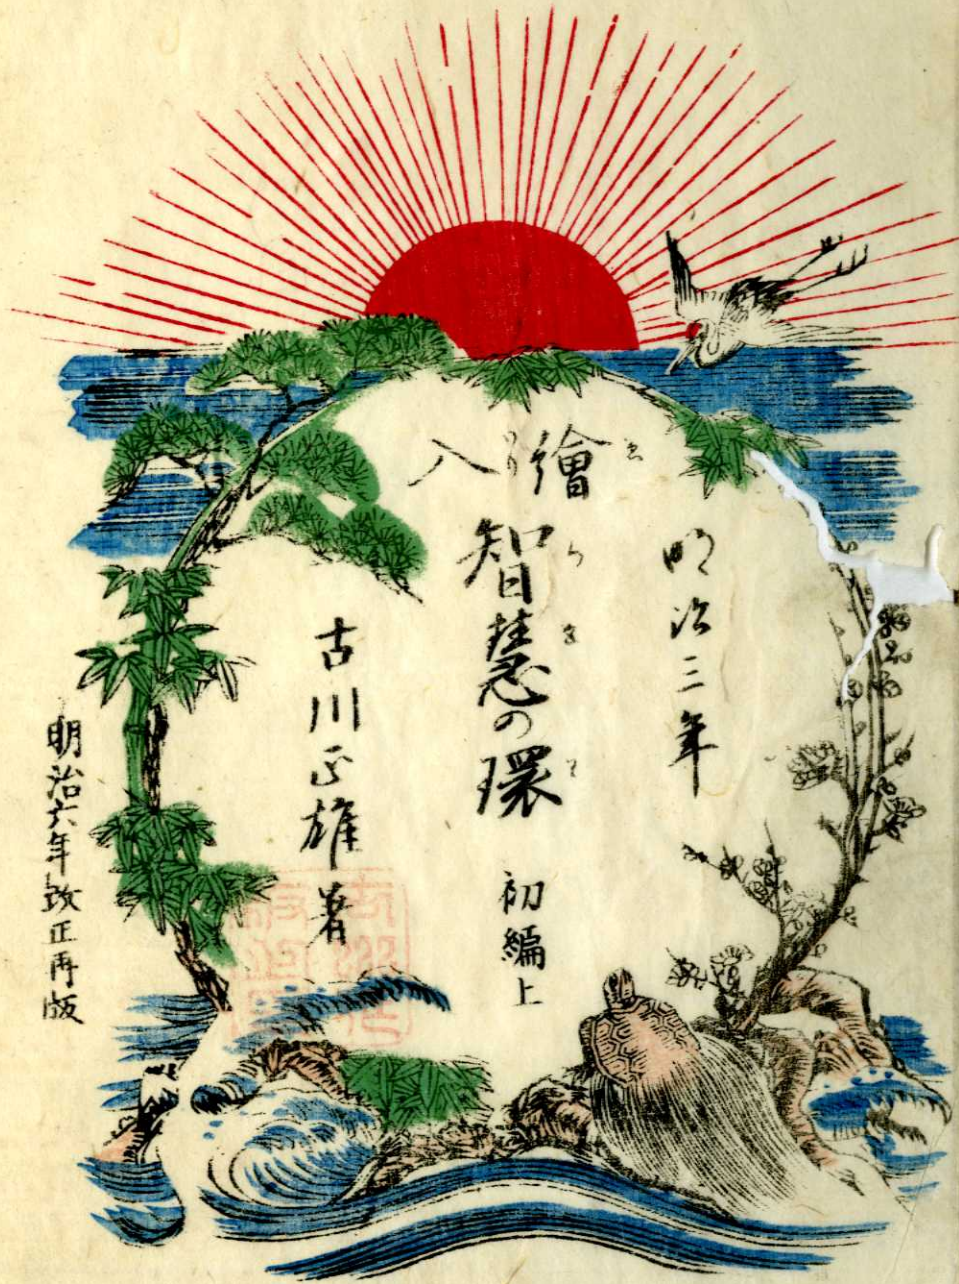 明治三年
繪入
智慧の環 初編上
古川正雄著
明治六年改正再版